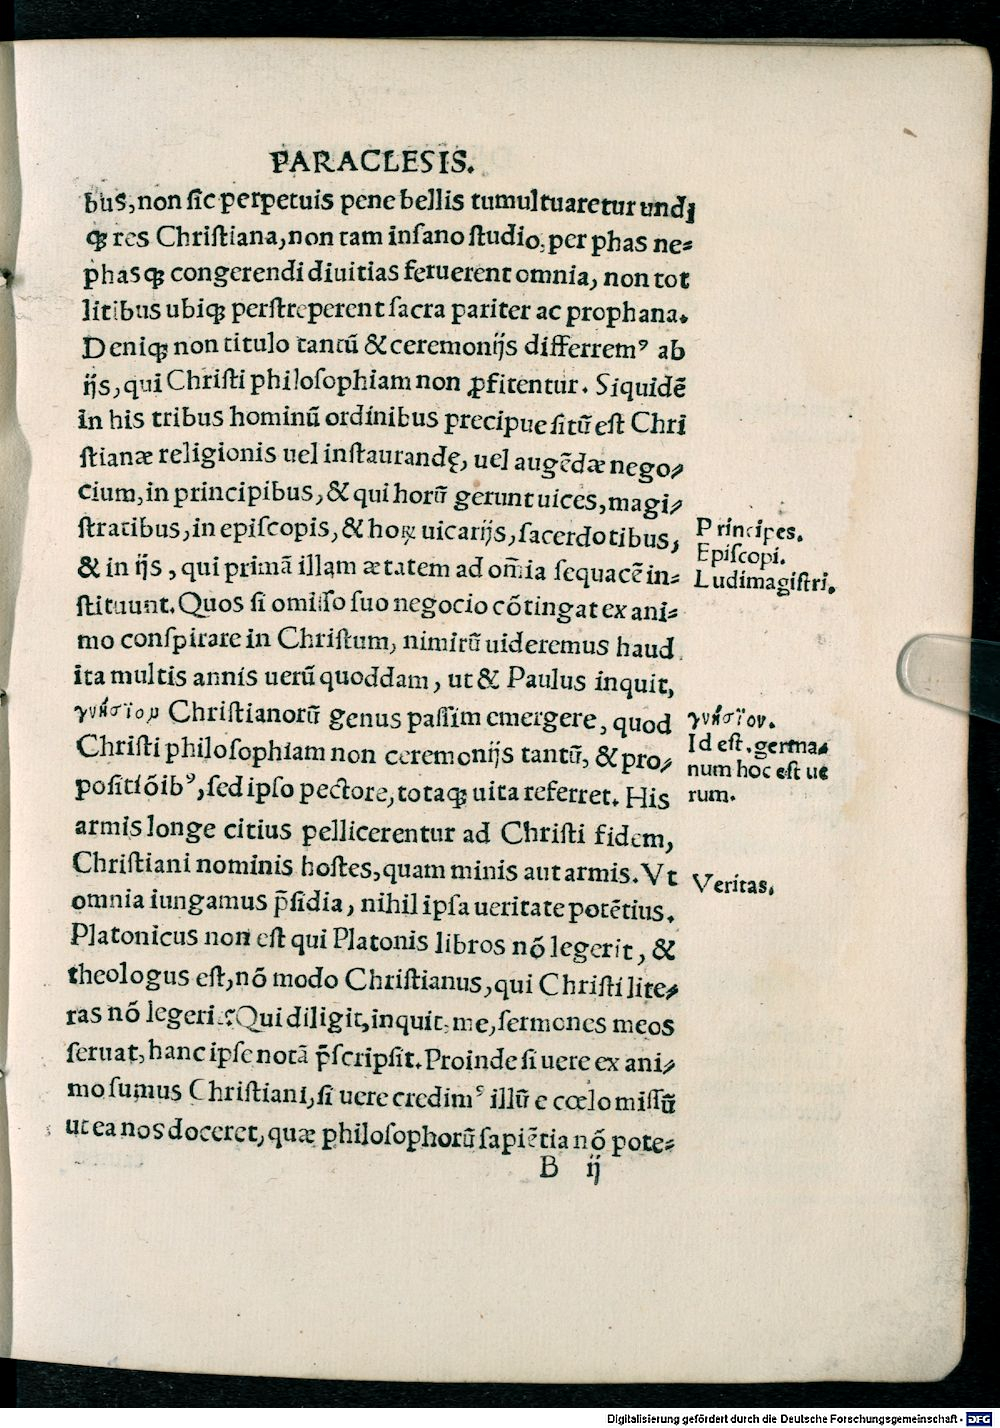 PARACLESIS.
bus, non ſic perpetuis pene bellis tumultuaretur undi
qꝫ res Chriſtiana, non tam inſano ſtudio, per phas ne⸗
phasqꝫ congerendi diuitias feruerent omnia, non tot
litibus ubiqꝫ perſtreperent ſacra pariter ac prophana.
Deniqꝫ non titulo tantū & ceremonijs differremꝰ ab
ijs, qui Chriſti philoſophiam non ꝓfitentur. Siquidē
in his tribus hominū ordinibus precipue ſitū eſt Chri
ſtianæ religionis uel inſtaurandę, uel augēdæ nego⸗
cium, in principibus, & qui horū gerunt uices, magi⸗
ſtratibus, in epiſcopis, & hoꝝ uicarijs, ſacerdotibus,
& in ijs, qui primā illam ætatem ad om̄ia ſequacē in⸗
ſtituunt. Quos ſi omiſſo ſuo negocio cōtingat ex ani⸗
mo conſpirare in Chriſtum, nimirū uideremus haud
ita multis annis uerū quoddam, ut & Paulus inquit,
γνήσϊομ Chriſtianorū genus paſſim emergere, quod
Chriſti philoſophiam non ceremonijs tantū, & pro⸗
poſitiōibꝰ, ſed ipſo pectore, totaqꝫ uita referret. His
armis longe citius pellicerentur ad Chriſti fidem,
Chriſtiani nominis hoſtes, quam minis aut armis. Vt
omnia iungamus p̄ſidia, nihil ipſa ueritate potētius.
Platonicus non eſt qui Platonis libros nō legerit, &
theologus eſt, nō modo Chriſtianus, qui Chriſti lite⸗
ras nō legerit? Qui diligit, inquit, me, ſermones meos
ſeruat, hanc ipſe notā p̄ſcripſit. Proinde ſi uere ex ani⸗
mo ſumus Chriſtiani, ſi uere credimꝰ illū e cœlo miſſū
ut ea nos doceret, quæ philoſophorū ſapiētia nō pote⸗
B ij
Principes.
Epiſcopi.
Ludimagiſtri.
γνήσϊον.
Id eſt. germa⸗
num hoc eſt ue
rum.
Veritas.
Digitalisierung gefördert durch die Deutsche Forschungsgemeinschaft - DFG